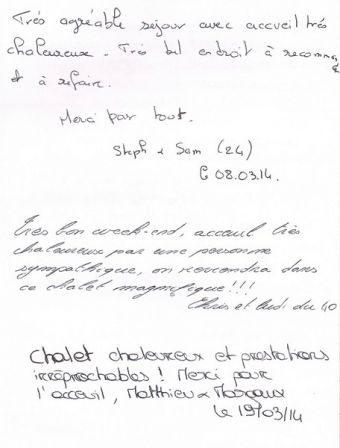 Très agréable séjour avec accueil très
chaleureux. Très bel endroit à recomm
et à refaire.
Merci par tout.
Steph & Sam (24)
Le 08.03.14.
Très bon week-end, acceuil très
chaleureux par une personne
sympathique, on reviendra dans
ce chalet magnifique !!!
et Ludi du 40
Chalet chaleureux et prestations
irréprochables ! Merci pour
l'acceuil, Matthieu & Margaux
Le 19/03/14